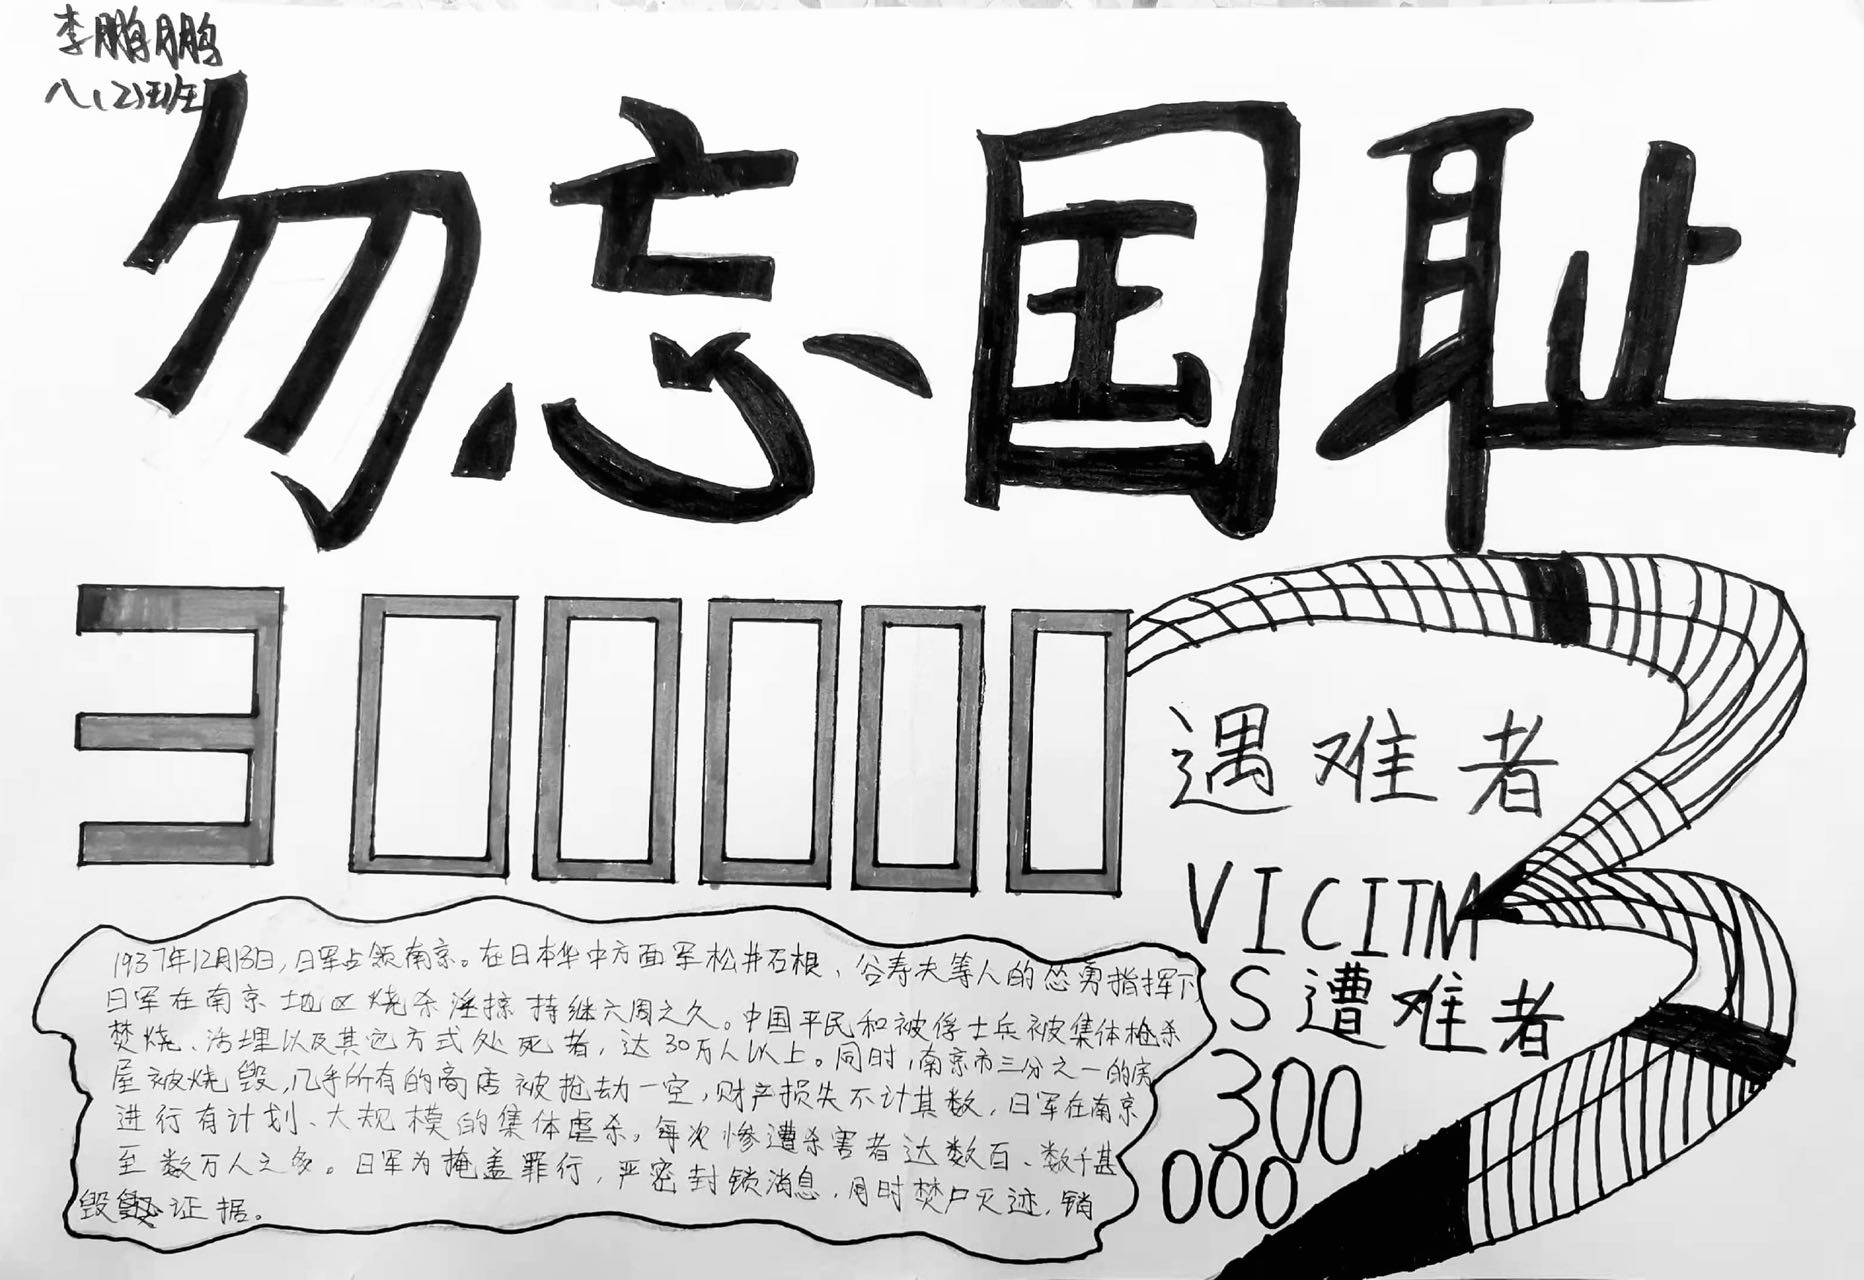 李鹏鹏
八(2)班
勿忘国耻
300000
遇难者
VICITM
S遭难者
300
000
1937年12月13日,日军占领南京。在日本华中方面军松井石根、谷寿夫等人的怂勇指挥下
日军在南京地区烧杀淫掠持继六周之久。中国平民和被俘士兵被集体枪杀
焚烧、活埋以及其它方式处死者,达30万人以上。同时,南京市三分之一的房
屋被烧毁,几乎所有的商店被抢劫一空,财产损失不计其数,日军在南京
进行有计划、大规模的集体虐杀。每次惨遭杀害者达数百、数千甚
至数万人之多。日军为掩盖罪行,严密封锁消息,同时焚尸灭迹,销
毁证据。